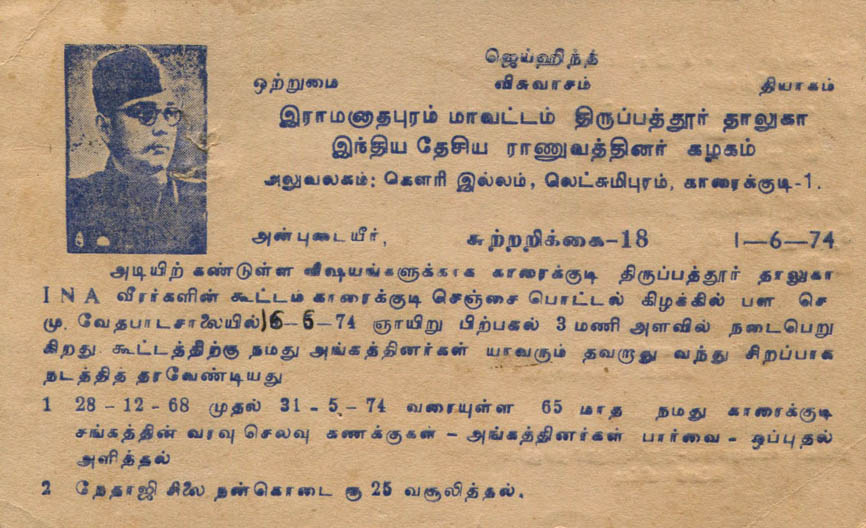 ஜெய்ஹிந்த்
ஒற்றுமை விசுவாசம் தியாகம்
இராமனாதபுரம் மாவட்டம் திருப்பத்தூர் தாலுகா
இந்திய தேசிய ராணுவத்தினர் கழகம்
அலுவலகம்: கௌரி இல்லம், லெட்சுமிபுரம், காரைக்குடி-1.
அன்புடையீர், சுற்றறிக்கை-18 1-6-74
அடியிற் கண்டுள்ள விஷயங்களுக்காக காரைக்குடி திருப்பத்தூர் தாலுகா
INA வீரர்களின் கூட்டம் காரைக்குடி செஞ்சை பொட்டல் கிழக்கில் பள செ
மு. வேதபாடசாலையில் 16-6-74 ஞாயிறு பிற்பகல் 3 மணி அளவில் நடைபெறு
கிறது. கூட்டத்திற்கு நமது அங்கத்தினர்கள் யாவரும் தவறாது வந்து சிறப்பாக
நடத்தித் தரவேண்டியது
1 28-12-68 முதல் 31-5-74 வரையுள்ள 65 மாத நமது காரைக்குடி
சங்கத்தின் வரவு செலவு கணக்குகள் - அங்கத்தினர்கள் பார்வை - ஒப்புதல்
அளித்தல்
2 நேதாஜி சிலை நன்கொடை ரூ 25 வசூலித்தல்.